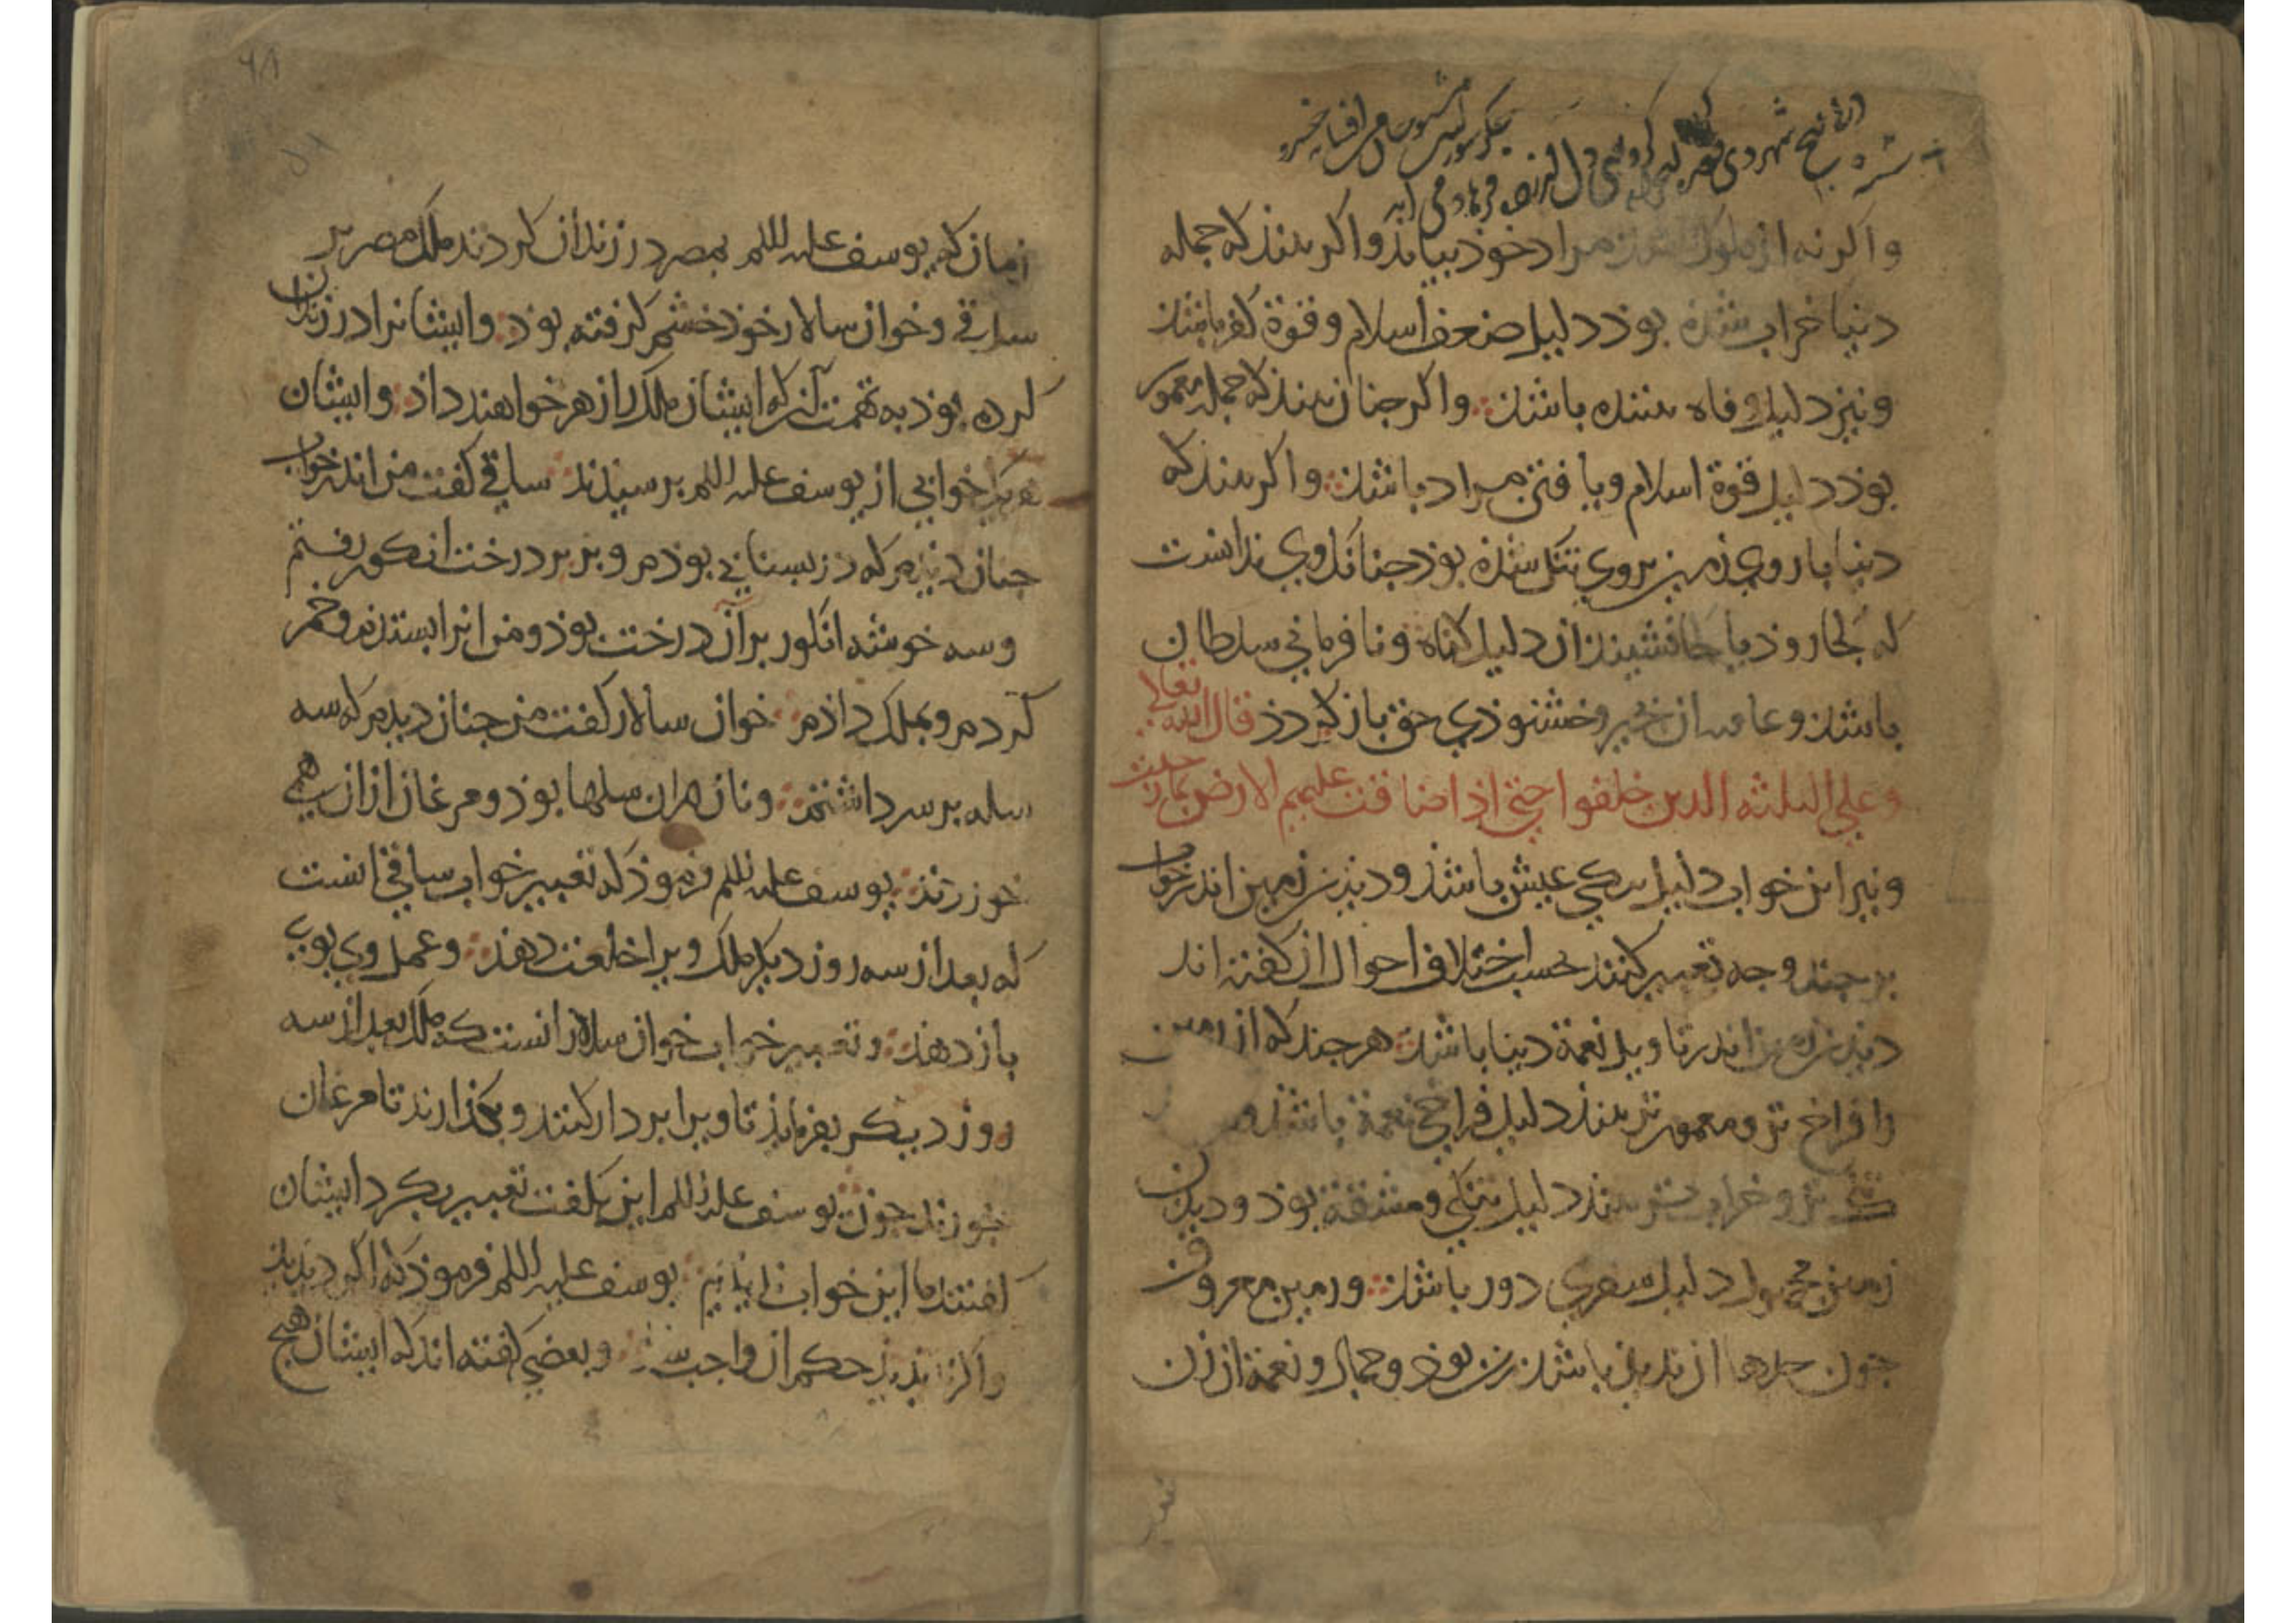 واکر نه از ملوک باشد مراد خوذ بیابذ واکر بیند که جمله
دنیا خراب شذه بوذ دلیل ضعف اسلام و قوة کفر باشذ
ونیز دلیل وفاه بیننده باشذ واکر جنان بیند که جمله معمور
بوذ دلیل قوة اسلام ویافتن مراد باشذ واکر بیند که
دنیا با روی زمین بر وی تنک شذه بوذ جنانک وی نداست
که بکجا روذ یا کجا نشیند آن دلیل کناه ونافرمانی سلطان
باشذ وعاقبت آن بخیر وخشنوذی حق باز کردذ قال الله تعالی
وعلی الثلثه الدین خلفوا حتی اذا ضاقت علیهم الارض بما رحبت
ونیز این خواب دلیل تنکی عیش باشذ ودیذن زمین اندر خواب
بر جند وجه تعبیر کنند بحسب اختلاف احوال ان کفته اند
دیذن زمین اندر تاویل نعمة دنیا باشذ هر جند که از زمین
را فراخ تر ومعمور تر بیند دلیل فراخی نعمة باشذ و
تنک تر وخراب تر بیند دلیل تنکی ومشقة بوذ ودیدن
زمین مجهول دلیل سفری دور باشذ وزمین معروف
جون حدها آن بدید باشذ زن بوذ وجمال ونعمة آن زن
۶۸
زمان که یوسف علیه السلم بمصر در زندان کردند ملک مصر بر
ساقی وخوان سالار خوذ خشم کرفته بوذ وایشانرا در زندان
کرده بوذ به تهمت آنک ایشان ملک را زهر خواهند داذ وایشان
هر یک خوابی از یوسف علیه السلم برسیذند ساقی کفت من اندر خواب
جنان دیذم که در بستانی بوذم وبر بر درخت انکور رفتم
وسه خوشه انکور بر آن درخت بوذ ومن انرا بستدم وخمر
کردم وبملک داذم خوان سالار کفت من جنان دیذم که سه
سله بر سر داشتم ونان در ان سلها بوذ ومرغان از ان همی
خوردند یوسف علیه السلم فرموذ که تعبیر خواب ساقی آنست
که بعد از سه روز دیکر ملک ویرا خلعت دهذ وعمل وی بوی
باز دهذ وتعبیر خواب خوان سالار انست که ملک بعد از سه
روز دیکر بفرمایذ تا ویرا بر دار کنند وبکذارند تا مرغان
خورند جون یوسف علیه السلم این بکفت تعبیر بکرد ایشان
کفتند ما این خواب ندیذیم یوسف علیه السلم فرموذ که اکر دیذیذ
واکر ندیذیذ حکم آن واجب شذ وبعضی کفته اند که ایشان هیج